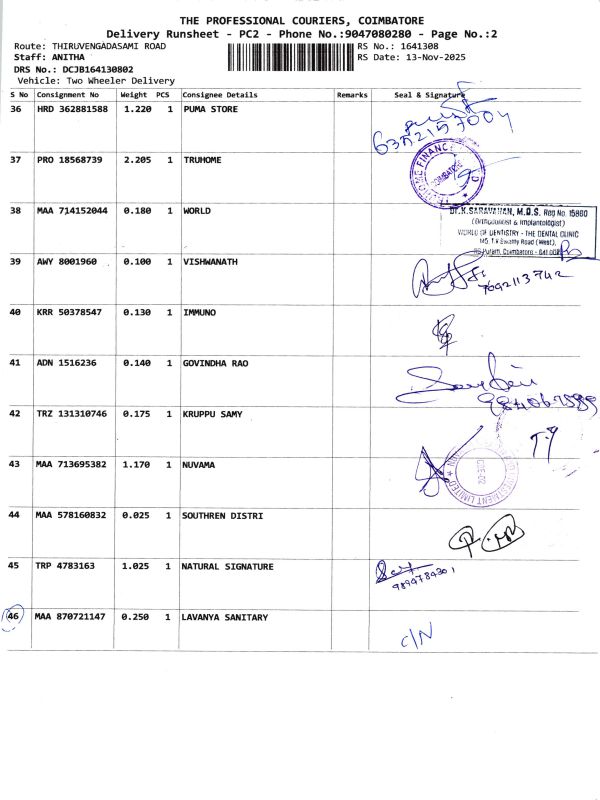 THE PROFESSIONAL COURIERS, COIMBATORE
Delivery Runsheet - PC2 - Phone No.:9047080280 - Page No.:2
Route: THIRUVENGADASAMI ROAD RS No.: 1641308
Staff: ANITHA RS Date: 13-Nov-2025
DRS No.: DCJB164130802
Vehicle: Two Wheeler Delivery
S No Consignment No Weight PCS Consignee Details Remarks Seal & Signature
36 HRD 362881588 1.220 1 PUMA STORE
37 PRO 18568739 2.205 1 TRUHOME
COIMBATORE
38 MAA 714152044 0.180 1 WORLD
Dr.K.SARAVANAN, M.D.S. Reg No. 15860
(Orthodontist & Implantologist)
WORLD OF DENTISTRY - THE DENTAL CLINIC
145, T.V Swamy Road (West),
Coimbatore
39 AWY 8001960 0.100 1 VISHWANATH
7092113742
40 KRR 50378547 0.130 1 IMMUNO
41 ADN 1516236 0.140 1 GOVINDHA RAO
42 TRZ 131310746 0.175 1 KRUPPU SAMY
43 MAA 713695382 1.170 1 NUVAMA
44 MAA 578160832 0.025 1 SOUTHREN DISTRI
45 TRP 4783163 1.025 1 NATURAL SIGNATURE
46 MAA 870721147 0.250 1 LAVANYA SANITARY
C/N